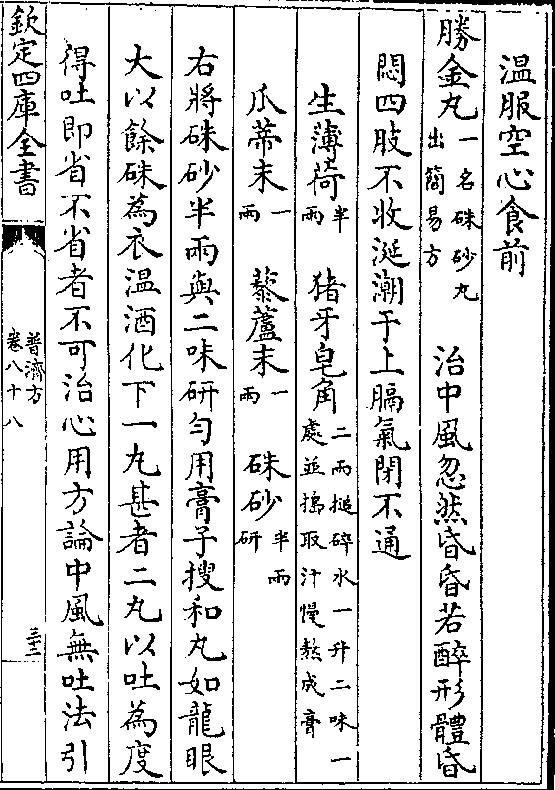 溫服空心食前
勝金丸一名硃砂丸出簡易方 治中風忽然昏昏若醉形體昏
悶四肢不收涎潮于上膈氣閉不通
生薄荷半兩 猪牙皂角二兩搥碎水一升二味一處並搗取汁慢熬成膏
爪蒂末一兩 藜蘆末一兩 硃砂半兩研
右將硃砂半兩與二味研勻用膏子搜和丸如龍眼
大以餘硃為衣溫酒化下一丸甚者二丸以吐為度
得吐即省不省者不可治心用方論中風無吐法引
欽定四庫全書 普濟方卷八十八 三十二